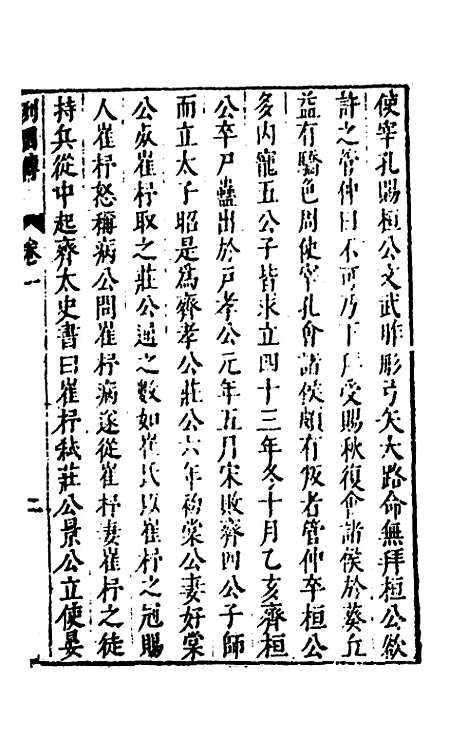 使宰孔賜桓公文武胙彤弓矢大路命無拜桓公欲
許之管仲曰不可乃下拜受賜秋復會諸侯於葵丘
益有驕色周使宰孔會諸侯頗有叛者管仲卒桓公
多内寵五公子皆求立四十三年冬十月乙亥齊桓
公卒尸蟲出於戸孝公元年五月宋敗齊四公子師
而立太子昭是爲齊孝公莊公六年初棠公妻好棠
公死崔杼取之莊公通之數如崔氏以崔杼之冠賜
人崔杼怒稱病公問崔杼病遂從崔杼妻崔杼之徒
持兵從中起齊太史書曰崔杼弑莊公景公立使晏
列國傳 卷一 二